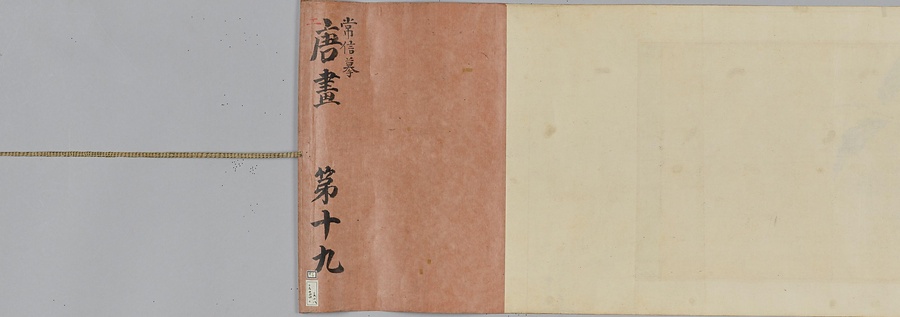 常信摹
二
唐畫 第十九